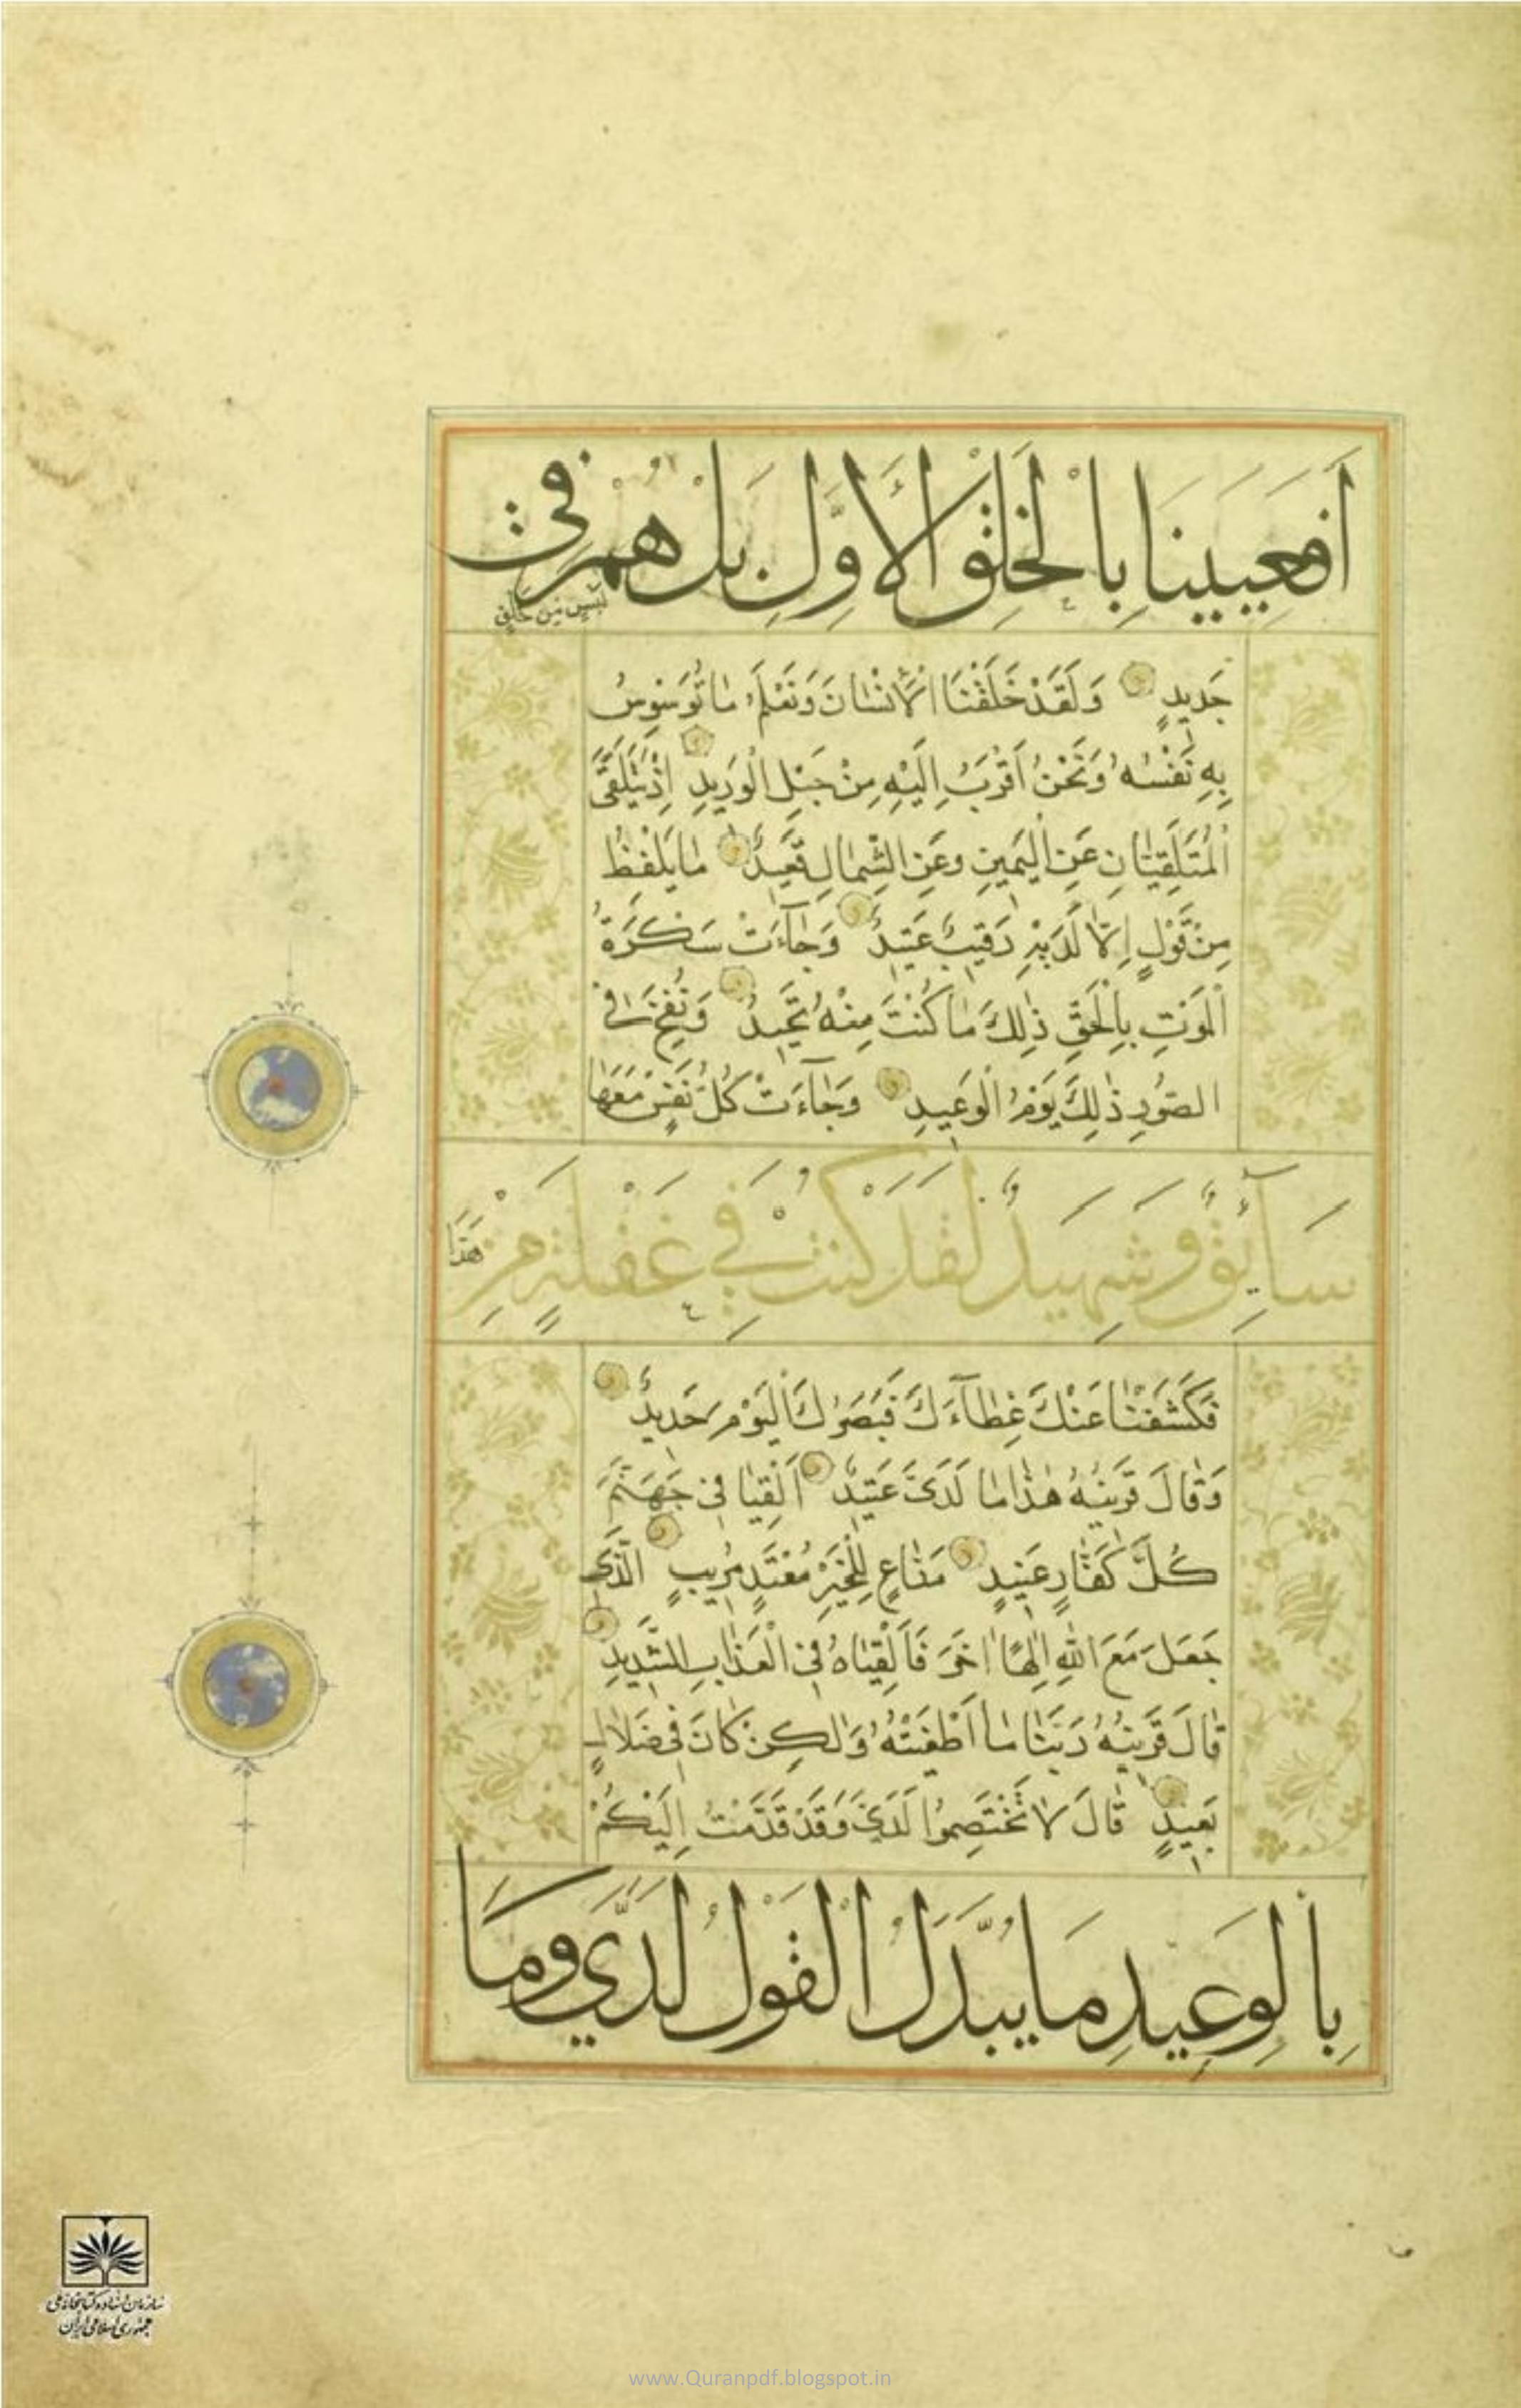 اَفَعَيِينَا بِالْخَلْقِ الْاَوَّلِ بَلْ هُمْ فِي
لَبْسٍ مِنْ خَلْقٍ
جَدِيدٍ وَلَقَدْ خَلَقْنَا الْاِنْسَانَ وَنَعْلَمُ مَا تُوَسْوِسُ
بِهِ نَفْسُهُ وَنَحْنُ اَقْرَبُ اِلَيْهِ مِنْ حَبْلِ الْوَرِيدِ اِذْ يَتَلَقَّى
الْمُتَلَقِّيَانِ عَنِ الْيَمِينِ وَعَنِ الشِّمَالِ قَعِيدٌ مَا يَلْفِظُ
مِنْ قَوْلٍ اِلَّا لَدَيْهِ رَقِيبٌ عَتِيدٌ وَجَآءَتْ سَكْرَةُ
الْمَوْتِ بِالْحَقِّ ذٰلِكَ مَا كُنْتَ مِنْهُ تَحِيدُ وَنُفِخَ فِي
الصُّورِ ذٰلِكَ يَوْمُ الْوَعِيدِ وَجَآءَتْ كُلُّ نَفْسٍ مَعَهَا
سَآئِقٌ وَشَهِيدٌ لَقَدْ كُنْتَ فِي غَفْلَةٍ مِنْ
هٰذَا
فَكَشَفْنَا عَنْكَ غِطَآءَكَ فَبَصَرُكَ الْيَوْمَ حَدِيدٌ
وَقَالَ قَرِينُهُ هٰذَا مَا لَدَيَّ عَتِيدٌ اَلْقِيَا فِي جَهَنَّمَ
كُلَّ كَفَّارٍ عَنِيدٍ مَنَّاعٍ لِلْخَيْرِ مُعْتَدٍ مُرِيبٍ الَّذِي
جَعَلَ مَعَ اللّٰهِ اِلٰهًا اٰخَرَ فَاَلْقِيَاهُ فِي الْعَذَابِ الشَّدِيدِ
قَالَ قَرِينُهُ رَبَّنَا مَا اَطْغَيْتُهُ وَلٰكِنْ كَانَ فِي ضَلَالٍ
بَعِيدٍ قَالَ لَا تَخْتَصِمُوا لَدَيَّ وَقَدْ قَدَّمْتُ اِلَيْكُمْ
بِالْوَعِيدِ مَا يُبَدَّلُ الْقَوْلُ لَدَيَّ وَمَا
سازمان اسناد و کتابخانه ملی
جمهوری اسلامی ایران
www.Quranpdf.blogspot.in